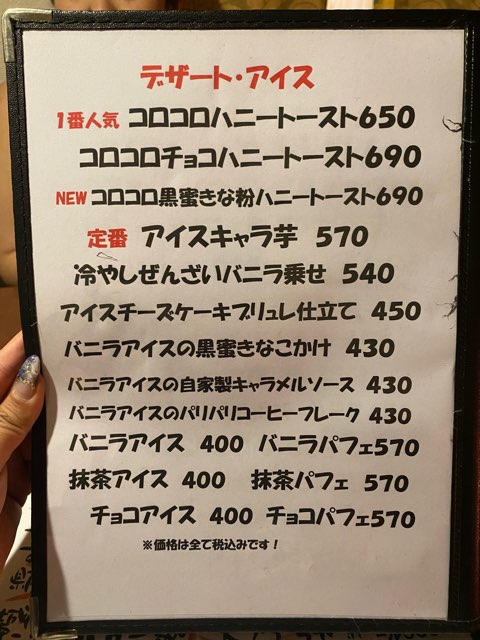 デザート・アイス
1番人気 コロコロハニートースト650
コロコロチョコハニートースト690
NEW コロコロ黒蜜きな粉ハニートースト690
定番 アイスキャラ芋 570
冷やしぜんざいバニラ乗せ 540
アイスチーズケーキブリュレ仕立て 450
バニラアイスの黒蜜きなこかけ 430
バニラアイスの自家製キャラメルソース 430
バニラアイスのパリパリコーヒーフレーク 430
バニラアイス 400 バニラパフェ570
抹茶アイス 400 抹茶パフェ 570
チョコアイス 400 チョコパフェ570
※価格は全て税込みです！